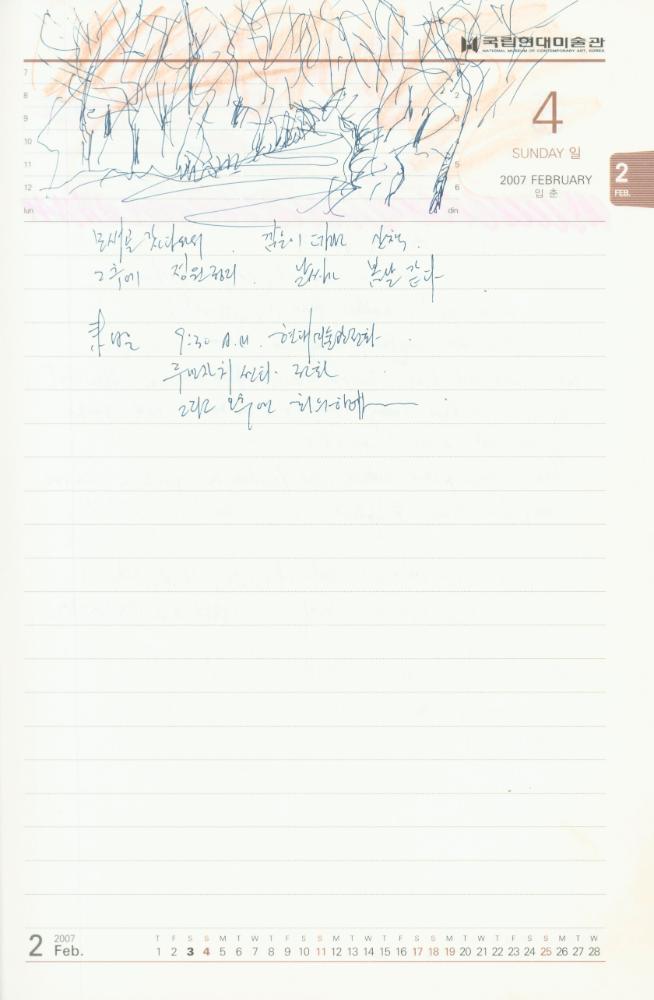 국립현대미술관
NATIONAL MUSEUM OF CONTEMPORARY ART, KOREA
7
8 2
9 3
10
11 5
12 6
lun din
4
SUNDAY 일
2007 FEBRUARY
입춘
2
FEB.
산책.
그후에 정원정리. 날씨가 봄날 같다
9:30 A.M. 현대미술관전화
주민자치센타. 전화
그리고 오후엔 회의하
2 2007 Feb.
T F S S M T W T F S S M T W T F S S M T W T F S S M T W
1 2 3 4 5 6 7 8 9 10 11 12 13 14 15 16 17 18 19 20 21 22 23 24 25 26 27 28